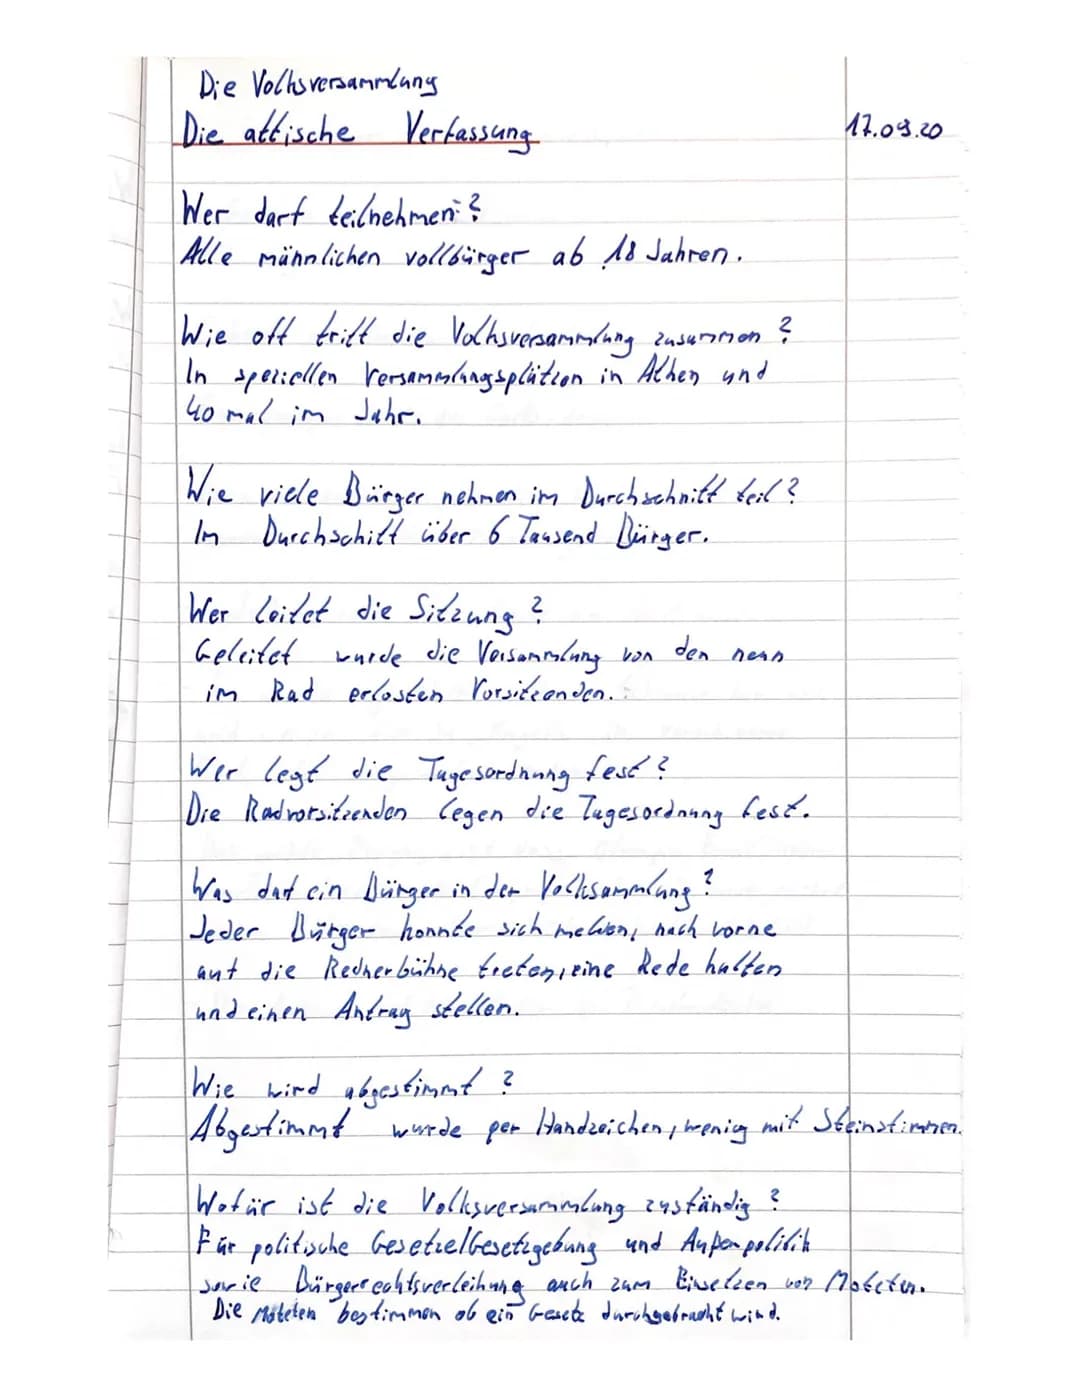 Die Volksversammlung
Die attische Verfassung 17.09.20
Wer darf teilnehmen?
Alle männlichen vollbürger ab 18 Jahren.
Wie oft tritt die Volksversammlung zusammen?
In speziellen Versammlungsplätzen in Athen und
40 mal im Jahr.
Wie viele Bürger nehmen im Durchschnitt teil?
Im Durchschitt über 6 Tausend Bürger.
Wer leitet die Sitzung?
Geleitet wurde die Versammlung von den neun
im Rad erlosten Vorsitzenden.
Wer legt die Tagesordnung fest?
Die Radvorsitzenden legen die Tagesordnung fest.
Was darf ein Bürger in der Volksammlung?
Jeder Bürger konnte sich melden, nach vorne
auf die Rednerbühne treten, eine Rede halten
und einen Antrag stellen.
Wie wird abgestimmt?
Abgestimmt wurde per Handzeichen, wenig mit Steinstimmen.
Wofür ist die Volksversammlung zuständig?
Für politische Gesetze/Gesetzgebung und Außenpolitik
sowie Bürgerrechtsverleihung auch zum Einsetzen von
Die bestimmen ob ein Gesetz durchgebracht wird.